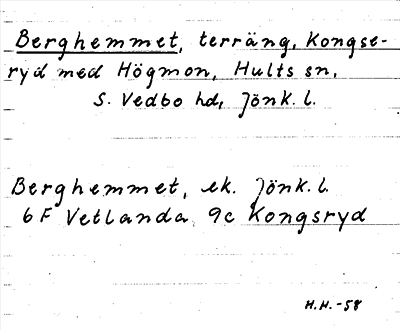 Berghemmet, terräng, Kongse-
ryd med Högmon, Hults sn,
S. Vedbo hd, Jönk. l.
Berghemmet, ek. Jönk. l.
6F Vetlanda 9c Kongsryd
H.H.-58